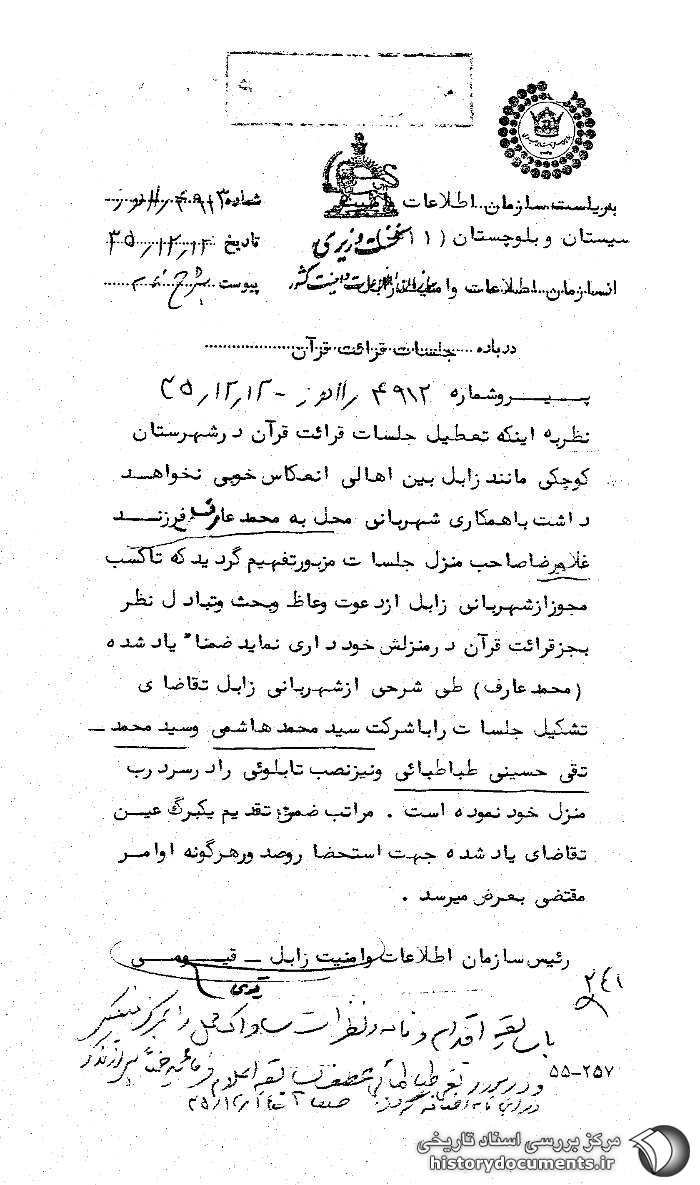 به ریاست سازمان اطلاعات
شماره ۴۹۱۳
سیستان و بلوچستان (۱۱
نخست وزیری
تاریخ ۳۵٫۱۲٫۱۲
از سازمان اطلاعات و امنیت
سازمان اطلاعات و امنیت کشور
پیوست
درباره جلسات قرائت قرآن
پیروشماره ۴۹۱۲ - ۳۵٫۱۲٫۱۲
نظربه اینکه تعطیل جلسات قرائت قرآن درشهرستان
کوچکی مانند زابل بین اهالی انعکاس خوبی نخواهد
داشت باهمکاری شهربانی محل به محمد عارف فرزند
غلامرضا صاحب منزل جلسات مزبورتفهیم گردید که تاکسب
مجوزازشهربانی زابل ازدعوت وعاظ وبحث وتبادل نظر
بجزقرائت قرآن درمنزلش خودداری نماید ضمناً یاد شده
(محمد عارف) طی شرحی ازشهربانی زابل تقاضای
تشکیل جلسات راباشرکت سید محمد هاشمی وسید محمد ـ
تقی حسینی طباطبائی ونیزنصب تابلوئی رادرسردرب
منزل خود نموده است . مراتب ضمن تقدیم یکبرگ عین
تقاضای یاد شده جهت استحضار وصدورهرگونه اوامر
مقتضی بعرض میرسد .
رئیس سازمان اطلاعات وامنیت زابل ـ قیومی
۲۴۱
۵۵-۲۵۷
مرکز بررسی اسناد تاریخی
historydocuments.ir